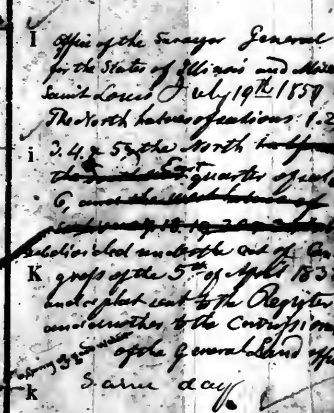 I Office of the Surveyor General
for the States of Illinois and Misso
Saint Louis July 19th 1859
The North halves of sections 1.2
i 3.4. & 5, the North half
the East quarter of sec
6, and the West halves of
subdivided under the act of Con
K gress of the 5th of April 183
and a plat sent to the Register
and another to the Commission
of the General Land offi
k Same day